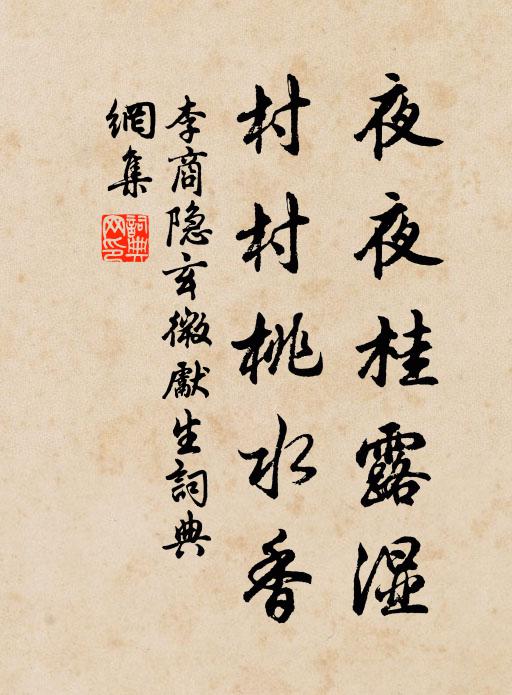 夜夜桂露湿
村村桃水香
李商隐玄微獻生詞典
網集
詞典
网印